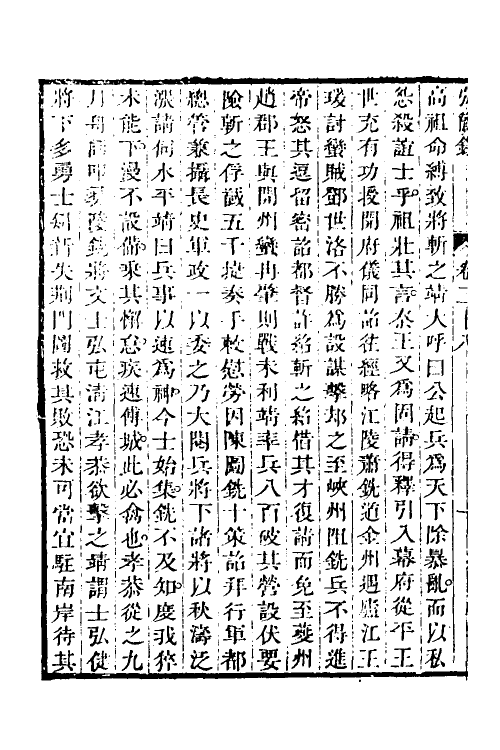 高祖命縛致將斬之靖大呼曰公起兵爲天下除暴亂而以私
怨殺誼士乎祖壯其言秦王又爲固請得釋引入幕府從平王
世充有功授開府儀同詔往經略江陵蕭銑道金州遇廬江王
瑗討蠻賊鄧世洛不勝爲設謀擊却之至峽州阻銑兵不得進
帝怒其逗留密詔都督許紹斬之紹惜其才復請而免至夔州
趙郡王與開州蠻冉肇則戰未利靖率兵八百破其營設伏要
險斬之俘馘五千捷奏手敕慰勞因陳圖銑十策詔拜行軍都
總管兼攝長史軍政一以委之乃大閱兵將下諸將以秋濤泛
漲請伺水平靖曰兵事以速爲神今士始集銑不及知度我猝
未能下漫不設備乘其懈怠疾速傅城此必禽也孝恭從之九
月舟師叩夷陵銑將文士弘屯淸江孝恭欲擊之靖謂士弘健
將下多勇士新失荆門闔救其敗恐未可當宜駐南岸待其